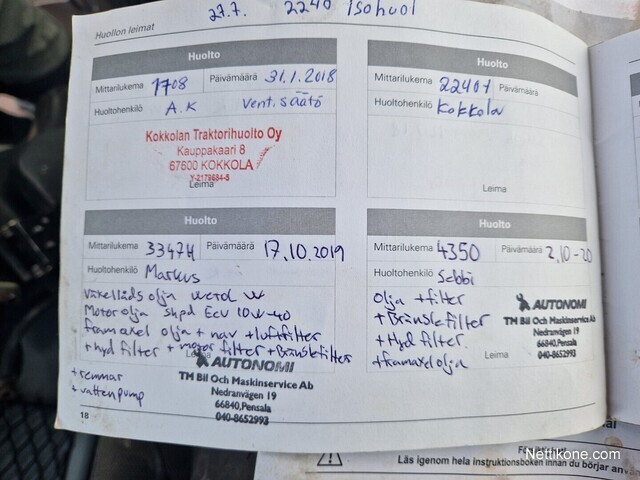 27.7. 2240 Isohuol
Huollon leimat
Huolto
Mittarilukema 1708 Päivämäärä 31.1.2018
Huoltohenkilö A.K Vent. säätö
Kokkolan Traktorihuolto Oy
Kauppakaari 8
67600 KOKKOLA
Y-2179654-5
Leima
Huolto
Mittarilukema 2240t Päivämäärä
Huoltohenkilö Kokkola
Leima
Huolto
Mittarilukema 3347H Päivämäärä 17.10.2019
Huoltohenkilö Markus
Växellåds olja
Motor olja Shpd Ecu 10W-40
framaxel olja + nav + luftfilter
+ hyd filter + motor filter + Bränslefilter
+ remmar
+ vattenpump
Leima
AUTONOMI
TM Bil Och Maskinservice Ab
Nedranvägen 19
66840, Pensala
040-8652993
Huolto
Mittarilukema 4350 Päivämäärä 2.10-20
Huoltohenkilö Sebbi
Olja + filter
+ Bränslefilter
+ Hyd filter.
+ framaxelolja
Leima
AUTONOMI
TM Bil Och Maskinservice Ab
Nedranvägen 19
66840, Pensala
040-8652993
18
Läs igenom hela instruktionsboken innan du börjar använ
Nettikone.com